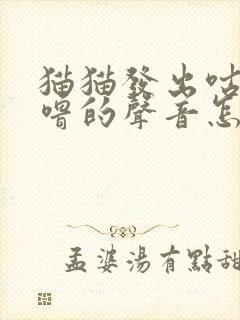 猫猫發出咕
嚕的聲音怎
孟婆湯有點甜